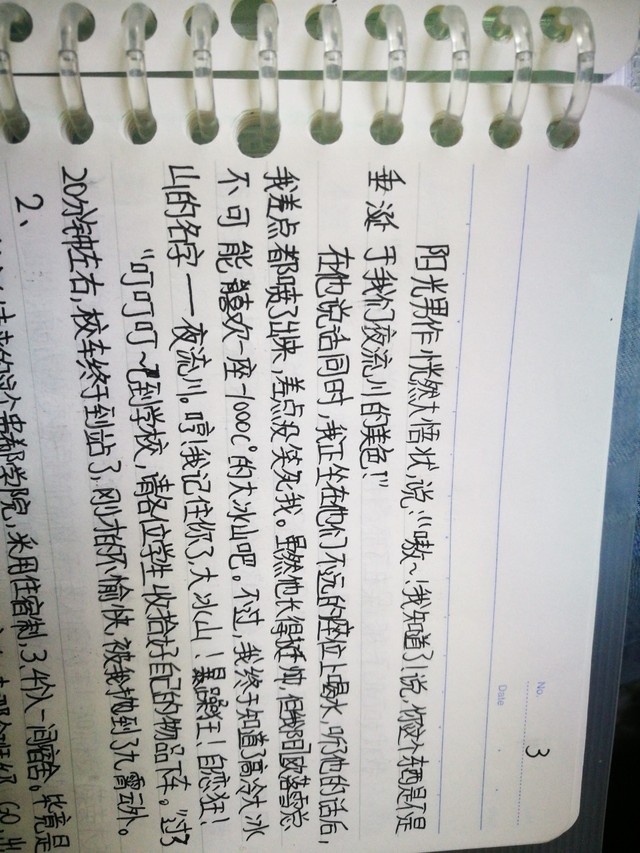 No. 3
Date
阳光男作恍然大悟状说:“嗷~!我知道了!说,你这个辆是不是
垂涎于我们夜流川的美色!”
在他说话同时,我正坐在他们不远的座位上喝水,听他的话后,
我差点都喷了出来,差点没笑死我。虽然他长得挺帅,但我阳欧落雪总
不可能喜欢一座-1000C°的大冰山吧。不过,我终于知道高冷大冰
山的名字——夜流川。哼!我记住你了,大冰山!暴躁狂!自恋狂!
“叮叮叮~!到学校,请各位学生收拾好自己的物品下车。”过了
20分钟左右,校车终于到站了,刚才的不愉快,被我抛到了九霄云外。
2、
学院,采用住宿制,3、4个人一间宿舍。毕竟是